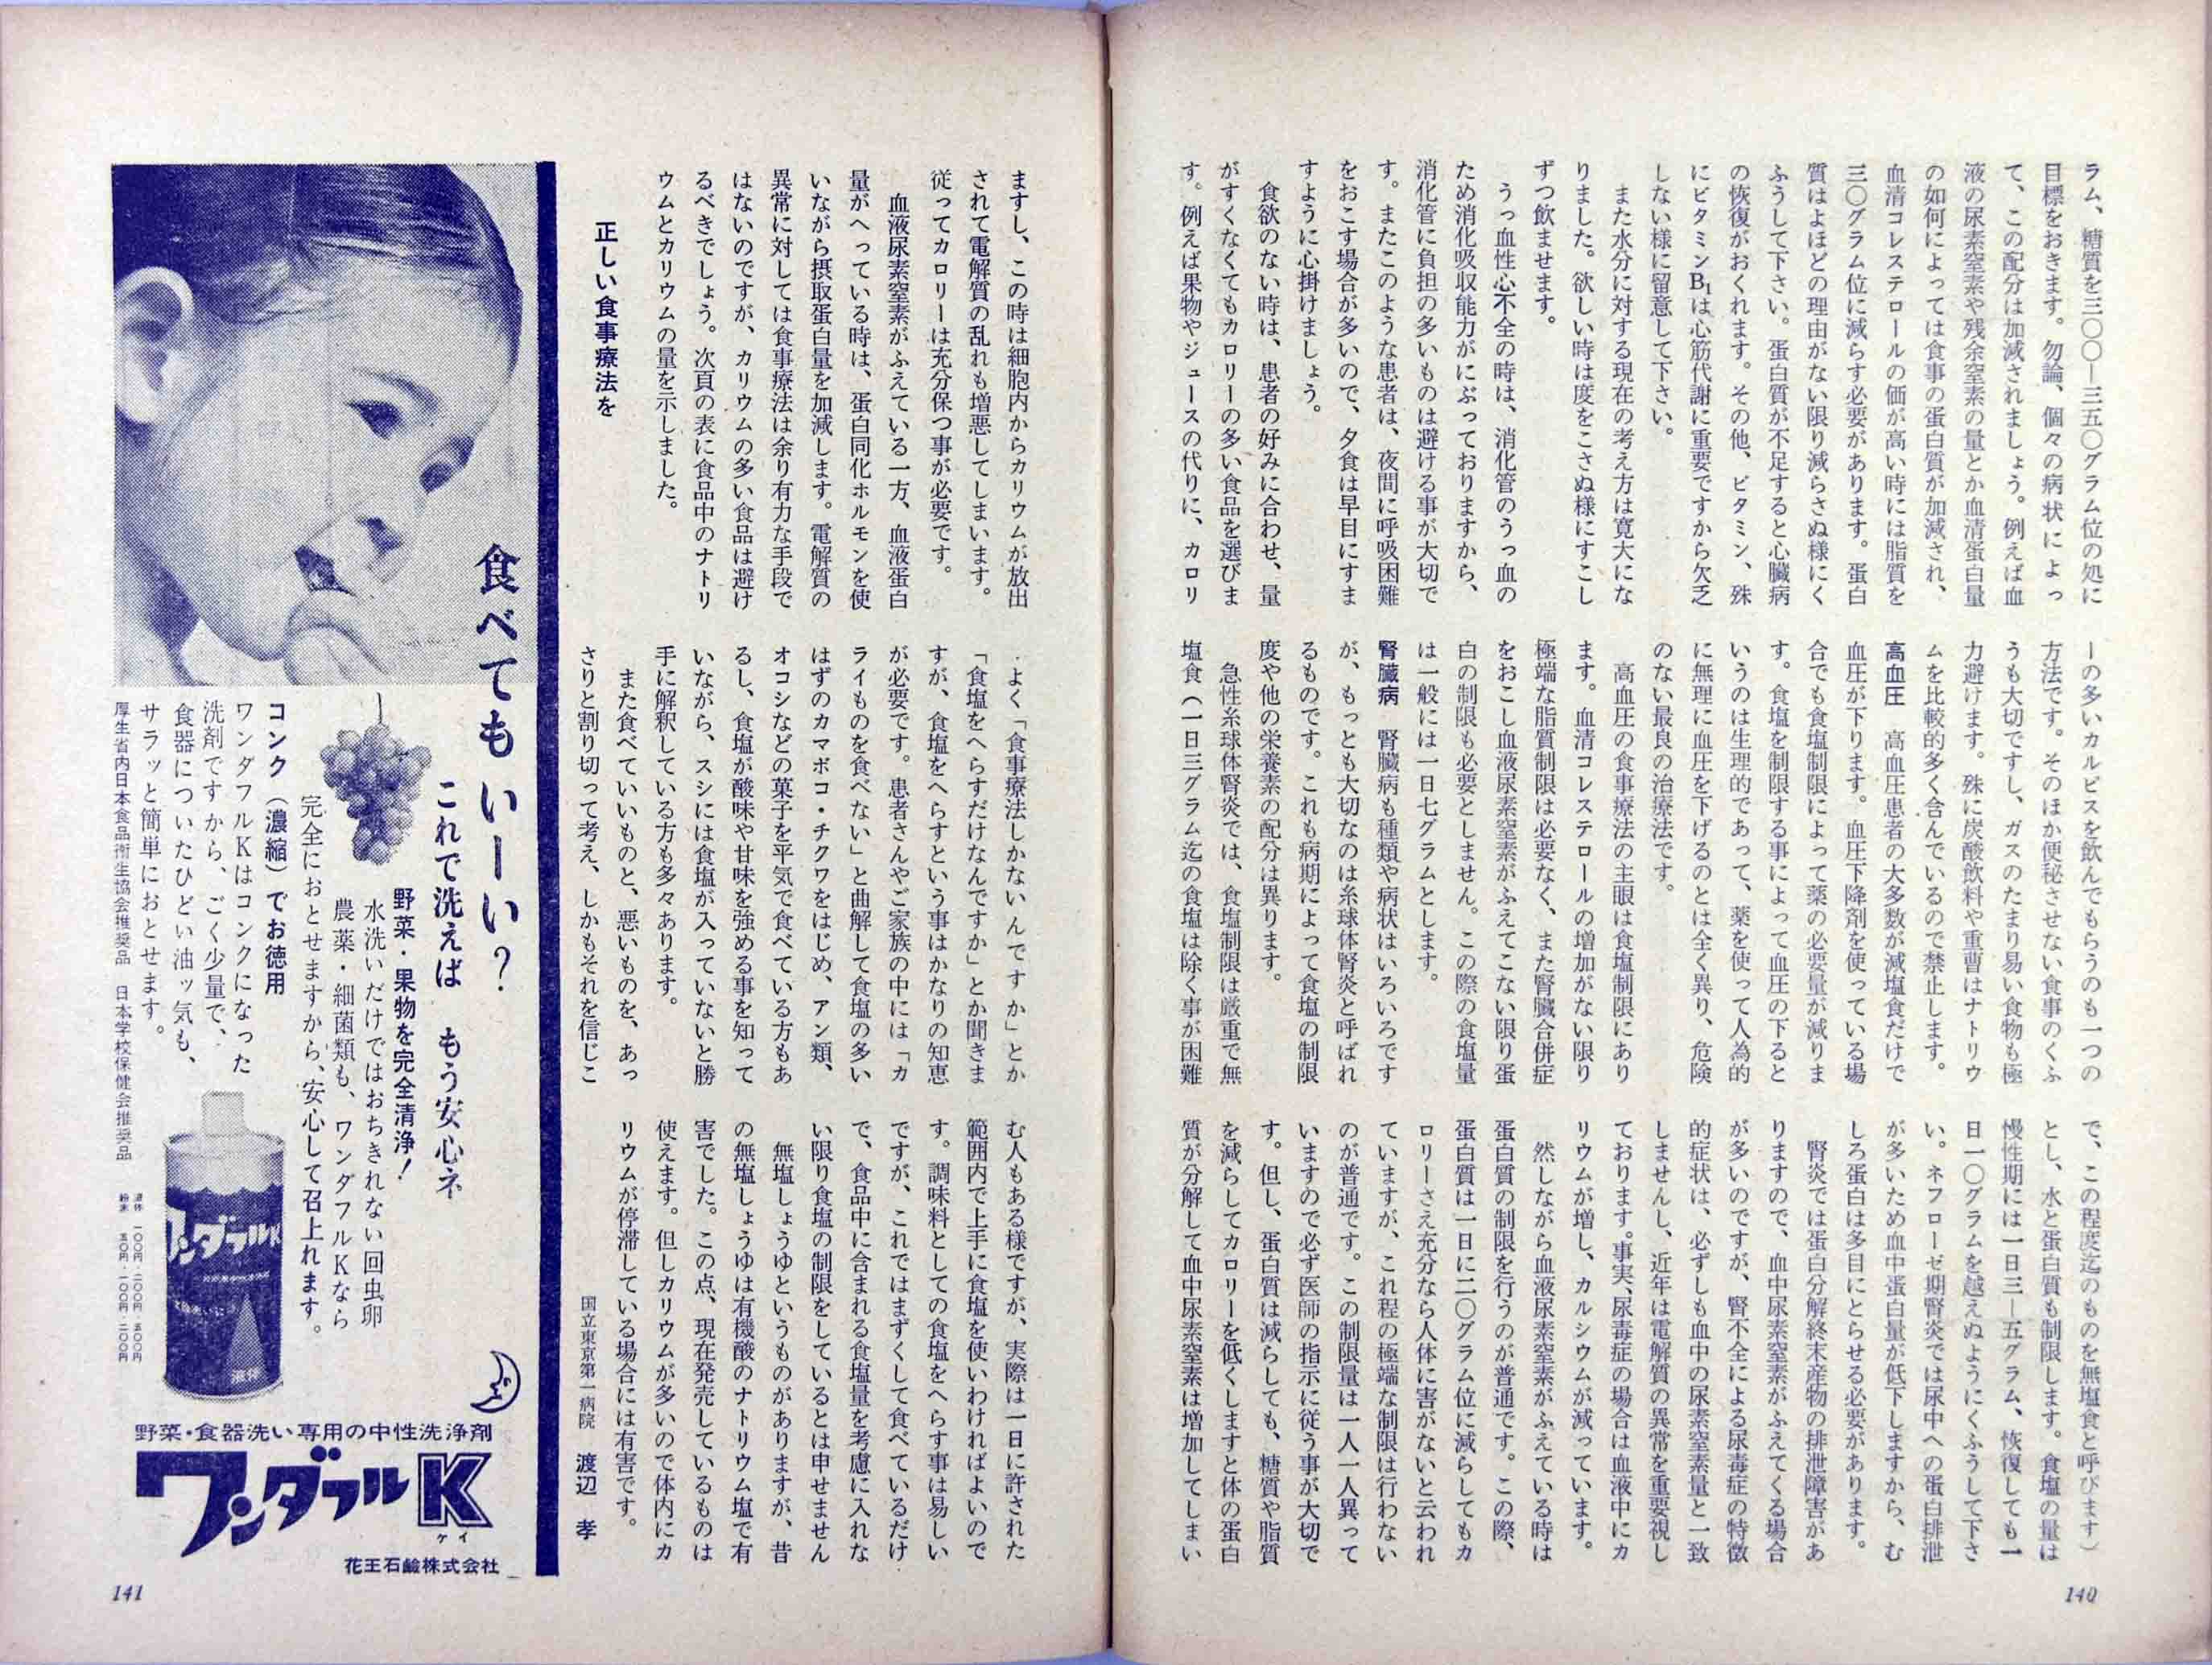 ラム、糖質を三〇〇―三五〇グラム位の処に
目標をおきます。勿論、個々の病状によっ
て、この配分は加減されましょう。例えば血
液の尿素窒素や残余窒素の量とか血清蛋白量
の如何によっては食事の蛋白質が加減され、
血清コレステロールの価が高い時には脂質を
三〇グラム位に減らす必要があります。蛋白
質はよほどの理由がない限り減らさぬ様にく
ふうして下さい。蛋白質が不足すると心臓病
の恢復がおくれます。その他、ビタミン、殊
にビタミンB₁は心筋代謝に重要ですから欠乏
しない様に留意して下さい。
また水分に対する現在の考え方は寛大にな
りました。欲しい時は度をこさぬ様にすこし
ずつ飲ませます。
うっ血性心不全の時は、消化管のうっ血の
ため消化吸収能力がにぶっておりますから、
消化管に負担の多いものは避ける事が大切で
す。またこのような患者は、夜間に呼吸困難
をおこす場合が多いので、夕食は早目にすま
すように心掛けましょう。
食欲のない時は、患者の好みに合わせ、量
がすくなくてもカロリーの多い食品を選びま
す。例えば果物やジュースの代りに、カロリ
ーの多いカルピスを飲んでもらうのも一つの
方法です。そのほか便秘させない食事のくふ
うも大切ですし、ガスのたまり易い食物も極
力避けます。殊に炭酸飲料や重曹はナトリウ
ムを比較的多く含んでいるので禁止します。
高血圧 高血圧患者の大多数が減塩食だけで
血圧が下ります。血圧下降剤を使っている場
合でも食塩制限によって薬の必要量が減りま
す。食塩を制限する事によって血圧の下ると
いうのは生理的であって、薬を使って人為的
に無理に血圧を下げるのとは全く異り、危険
のない最良の治療法です。
高血圧の食事療法の主眼は食塩制限にあり
ます。血清コレステロールの増加がない限り
極端な脂質制限は必要なく、また腎臓合併症
をおこし血液尿素窒素がふえてこない限り蛋
白の制限も必要としません。この際の食塩量
は一般には一日七グラムとします。
腎臓病 腎臓病も種類や病状はいろいろです
が、もっとも大切なのは糸球体腎炎と呼ばれ
るものです。これも病期によって食塩の制限
度や他の栄養素の配分は異ります。
急性糸球体腎炎では、食塩制限は厳重で無
塩食（一日三グラム迄の食塩は除く事が困難
で、この程度迄のものを無塩食と呼びます）
とし、水と蛋白質も制限します。食塩の量は
慢性期には一日三―五グラム、恢復しても一
日一〇グラムを越えぬようにくふうして下さ
い。ネフローゼ期腎炎では尿中への蛋白排泄
が多いため血中蛋白量が低下しますから、む
しろ蛋白は多目にとらせる必要があります。
腎炎では蛋白分解終末産物の排泄障害があ
りますので、血中尿素窒素がふえてくる場合
が多いのですが、腎不全による尿毒症の特徴
的症状は、必ずしも血中の尿素窒素量と一致
しませんし、近年は電解質の異常を重要視し
ております。事実、尿毒症の場合は血液中にカ
リウムが増し、カルシウムが減っています。
然しながら血液尿素窒素がふえている時は
蛋白質の制限を行うのが普通です。この際、
蛋白質は一日に二〇グラム位に減らしてもカ
ロリーさえ充分なら人体に害がないと云われ
ていますが、これ程の極端な制限は行わない
のが普通です。この制限量は一人一人異って
いますので必ず医師の指示に従う事が大切で
す。但し、蛋白質は減らしても、糖質や脂質
を減らしてカロリーを低くしますと体の蛋白
質が分解して血中尿素窒素は増加してしまい
140
ますし、この時は細胞内からカリウムが放出
されて電解質の乱れも増悪してしまいます。
従ってカロリーは充分保つ事が必要です。
血液尿素窒素がふえている一方、血液蛋白
量がへっている時は、蛋白同化ホルモンを使
いながら摂取蛋白量を加減します。電解質の
異常に対しては食事療法は余り有力な手段で
はないのですが、カリウムの多い食品は避け
るべきでしょう。次頁の表に食品中のナトリ
ウムとカリウムの量を示しました。
正しい食事療法を
よく「食事療法しかないんですか」とか
「食塩をへらすだけなんですか」とか聞きま
すが、食塩をへらすという事はかなりの知恵
が必要です。患者さんやご家族の中には「カ
ライものを食べない」と曲解して食塩の多い
はずのカマボコ・チクワをはじめ、アン類、
オコシなどの菓子を平気で食べている方もあ
るし、食塩が酸味や甘味を強める事を知って
いながら、スシには食塩が入っていないと勝
手に解釈している方も多々あります。
また食べていいものと、悪いものを、あっ
さりと割り切って考え、しかもそれを信じこ
む人もある様ですが、実際は一日に許された
範囲内で上手に食塩を使いわければよいので
す。調味料としての食塩をへらす事は易しい
ですが、これではまずくして食べているだけ
で、食品中に含まれる食塩量を考慮に入れな
い限り食塩の制限をしているとは申せません
無塩しょうゆというものがありますが、昔
の無塩しょうゆは有機酸のナトリウム塩で有
害でした。この点、現在発売しているものは
使えます。但しカリウムが多いので体内にカ
リウムが停滞している場合には有害です。
国立東京第一病院 渡辺 孝
食べてもいーい？
これで洗えば もう安心ネ
野菜・果物を完全清浄！
水洗いだけではおちきれない回虫卵
農薬・細菌類も、ワンダフルKなら
完全におとせますから、安心して召上れます。
コンク（濃縮）でお徳用
ワンダフルKはコンクになった
洗剤ですから、ごく少量で、
食器についたひどい油ッ気も、
サラッと簡単におとせます。
厚生省内日本食品衛生協会推奨品 日本学校保健会推奨品
液体 一〇〇円・二〇〇円・五〇〇円
粉末 五〇円・一〇〇円・二〇〇円
ワンダフルK
液体
野菜・食器洗い専用の中性洗浄剤
ワンダフルK
ケイ
花王石鹸株式会社
141